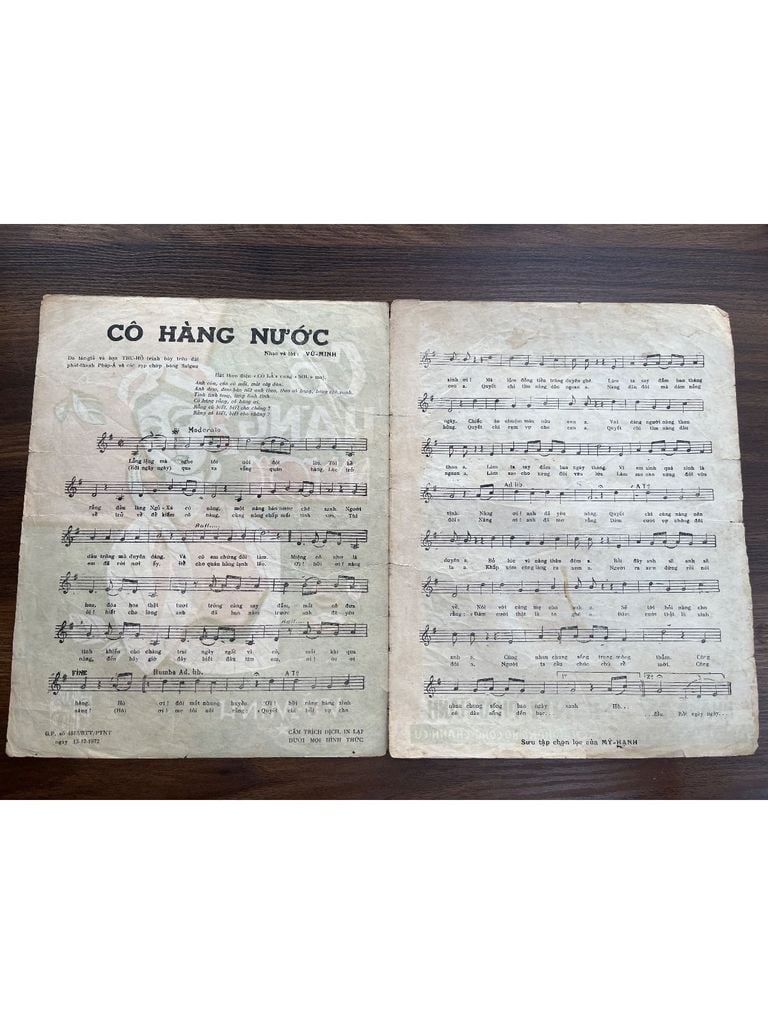 CÔ HÀNG NƯỚC
Nhạc và lời : VŨ-MINH
Do tác-giả và bạn THU-HỒ trình bày trên đài
phát-thanh Pháp-Á và các rạp chớp bóng Saigon
Hát theo điệu « CÒ LẢ » cung « SOL » maj.
Anh còn, còn có mỗi, mỗi cây đàn,
Anh đem, đem bán nốt anh theo, theo cô hàng, hàng chè xanh.
Tình tình tang, tang tình tình
Cô hàng rằng, cô hàng ơi,
Rằng có biết, biết cho chăng ?
Rằng có biết, biết cho chăng ?
Moderato
Lẳng lặng mà nghe tôi nói đôi lời. Tôi kể
(Rồi ngày ngày) qua xa vắng quán hàng. Lúc trở
rằng đầu làng Ngũ-Xá có nàng, một nàng bán nước chè xanh. Người
về để kiếm cô nàng, cùng nàng chấp mối tình xưa. Thì
Rall...
đâu trông mà duyên dáng. Và cô em chừng đôi tám. Miệng cô như là
em đã rời nơi ấy. Để cho quán hàng lạnh lẽo. Ơi ! hỡi ơi ! nàng
hoa, đóa hoa thật tươi trông càng say đắm, mắt cô đưa
ôi ! biết cho lòng anh đã bao năm trước anh đã yêu
Rall....
tình khiến cho chàng trai ngây ngất vì cô, mỗi khi qua
nàng, đến bây giờ đây biết đâu tìm em, ơi ! ới ơi
FINE
Rumba Ad. lib.
A Tº
hàng. Hò ơi ! đôi mắt nhung huyền. Ơi ! hỡi nàng hàng xinh
nàng ! (Hò) ơi ! mẹ tôi nói rằng: «Quyết chí hỏi vợ cho
G.P. số 4813/BTT/PTNT
ngày 13-12-1972
CẤM TRÍCH DỊCH, IN LẠI
DƯỚI MỌI HÌNH THỨC
xinh ơi ! Má lúm đồng tiền trông duyên ghê. Làm ta say đắm bao tháng
con a. Quyết chí tìm nàng dâu ngoan a. Nàng dâu đôi má dám nắng
ngày. Chiếc áo chuồn màu nâu non a. Vai càng người nâng thêm
hồng. Quyết chí rạm vợ cho con a. Quyết chí tìm nàng dâu
thon a. Làm ta say đắm bao ngày tháng. Vì em xinh quá xinh là
ngoan a. Làm sao cho xứng đôi vừa lứa. Làm sao cho xứng đôi vừa
Ad lib.
A Tº
xinh. Nàng ơi ! anh đã yêu nàng. Quyết chí cùng nàng nên
đôi» Nàng ơi ! anh đã mơ rằng Đám cưới vợ chồng đôi
duyên a. Bỏ lúc vì nàng thân đờm a. Rồi đây anh sẽ anh
ta a. Khắp xóm cùng làng ra xem a. Người ra xem đứng rồi nói
về. Nói với cùng mẹ cho anh a. Sẽ tới hỏi nàng cho
rằng : «Đám cưới thật là to ghê a. Đám cưới trật là xinh
anh a. Cùng nhau chung sống trong mộng thắm. Cùng
đôi a. Người ta câu chúc chú rể mới. Cùng
1.
2.
nhau chung sống bao ngày xanh Hò...
cô dâu sống đến bạc... ...đầu. Rồi ngày ngày...
Sưu tập chọn lọc của MỸ-HẠNH